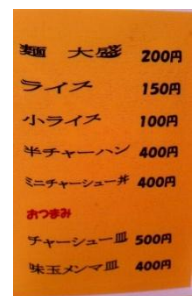 麺　大盛　200円
ライス　150円
小ライス　100円
半チャーハン　400円
ミニチャーシュー丼　400円
おつまみ
チャーシュー皿　500円
味玉メンマ皿　400円